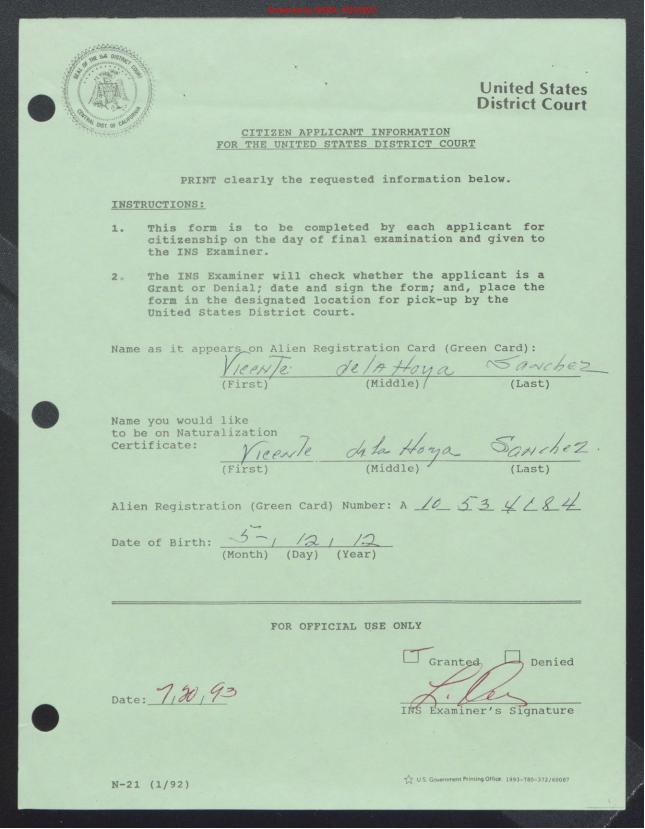 SEAL OF THE U.S. DISTRICT COURT
CENTRAL DIST. OF CALIFORNIA
United States
District Court
CITIZEN APPLICANT INFORMATION
FOR THE UNITED STATES DISTRICT COURT
PRINT clearly the requested information below.
INSTRUCTIONS:
1. This form is to be completed by each applicant for
citizenship on the day of final examination and given to
the INS Examiner.
2. The INS Examiner will check whether the applicant is a
Grant or Denial; date and sign the form; and, place the
form in the designated location for pick-up by the
United States District Court.
Name as it appears on Alien Registration Card (Green Card):
Vicente de la Hoya Sanchez
(First) (Middle) (Last)
Name you would like
to be on Naturalization
Certificate: Vicente de la Hoya Sanchez.
(First) (Middle) (Last)
Alien Registration (Green Card) Number: A 10 534 184
Date of Birth: 5-, 12, 12
(Month) (Day) (Year)
FOR OFFICIAL USE ONLY
Granted Denied
Date: 7, 20, 93
INS Examiner's Signature
N-21 (1/92)
☆ U.S. Government Printing Office: 1993-780-372/60087